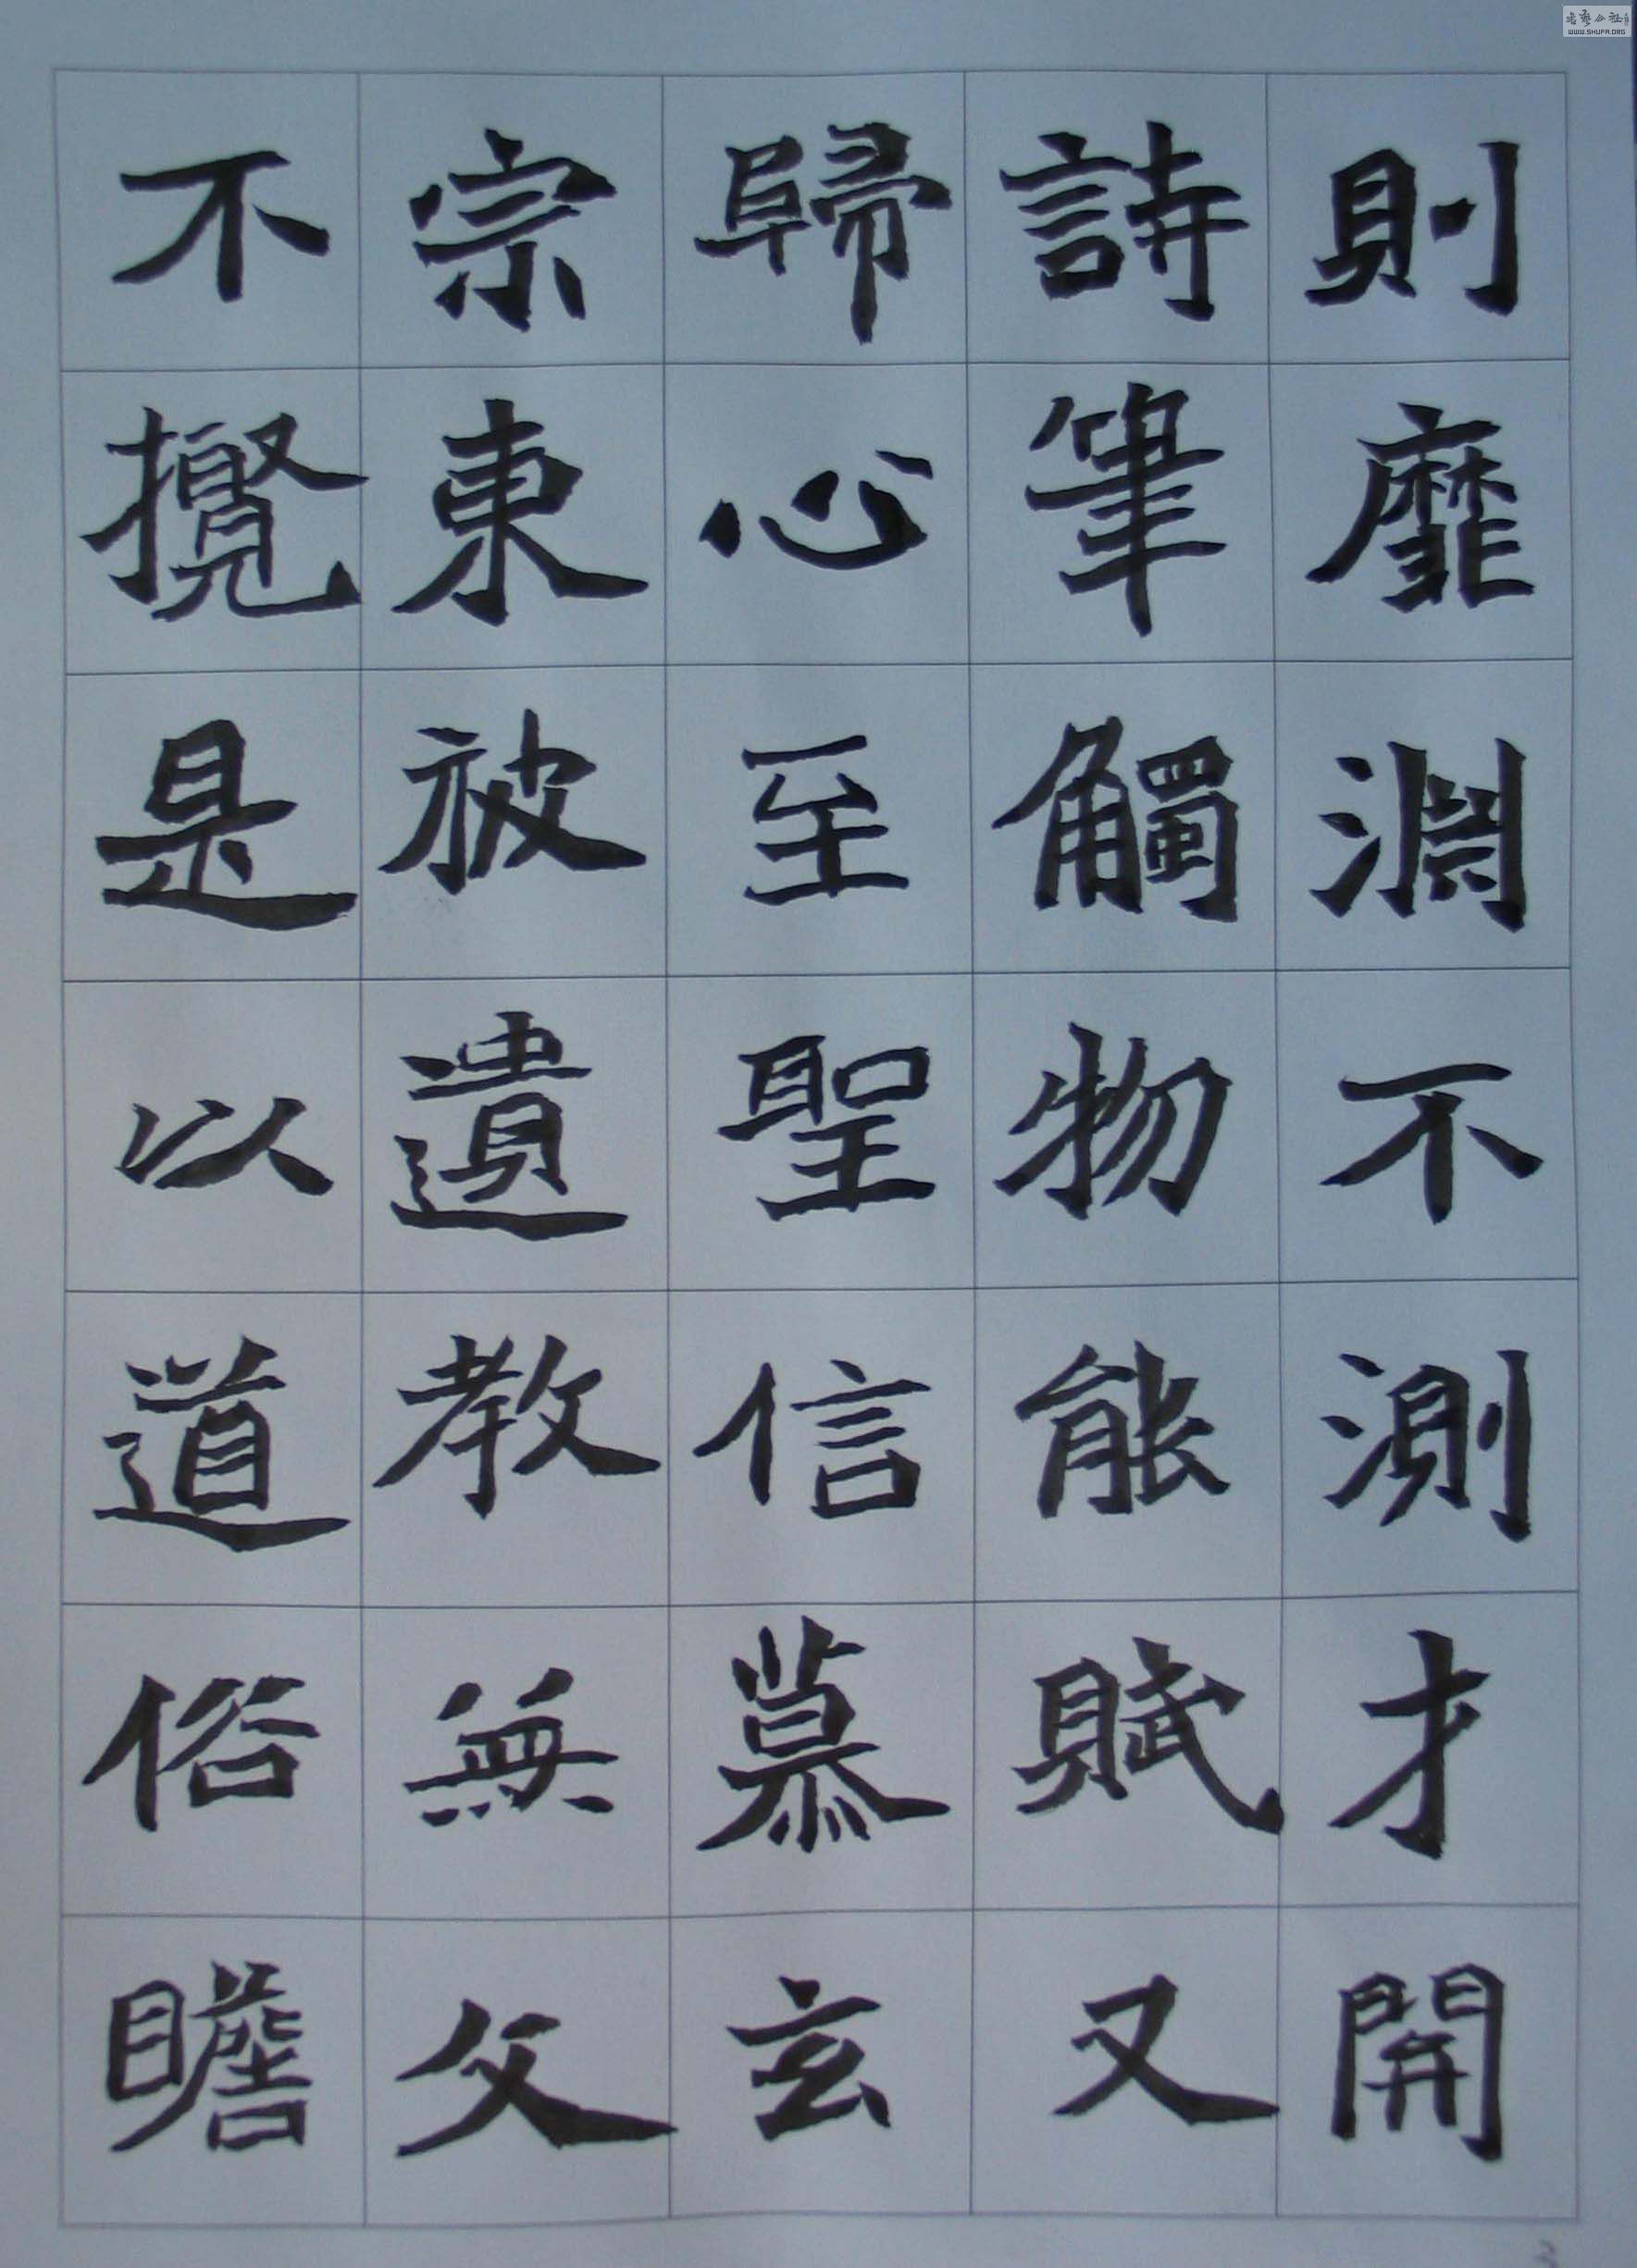 則靡淵不測才開
詩筆觸物能賦又
歸心至聖信慕玄
宗東被遺教無文
不攬是以道俗瞻
WWW.SHUFA.ORG